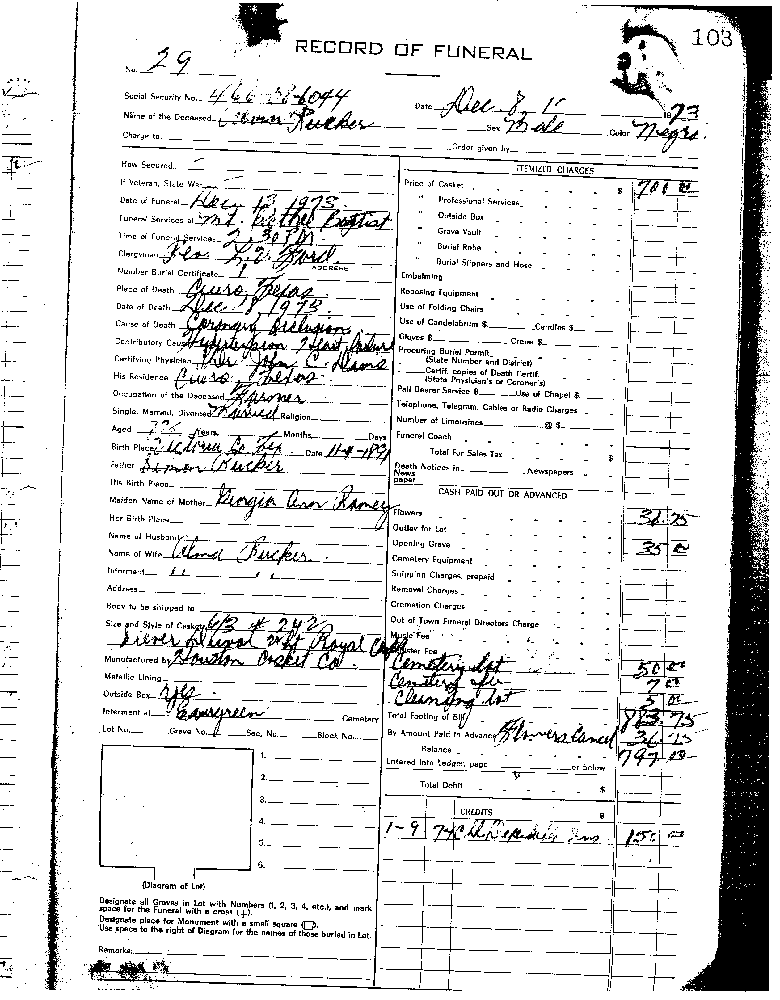 103
RECORD OF FUNERAL
No. 29
Social Security No. 466-
Date Dec 8, 1973
Name of the Deceased Rucker Sex Male Color Negro.
Charge to Order given by
How Secured
If Veteran, State War
Date of Funeral Dec. 13 1973
Funeral Services at Mt. Baptist
Time of Funeral Services 2:30 PM
Clergyman Rev. L. Ford ADDRESS
Number Burial Certificate 1
Place of Death Cuero, Texas
Date of Death Dec. 8 1973
Cause of Death Coronary Occlusion
Contributory Causes Hypertension Heart Failure
Certifying Physician Dr. John C. Adams
His Residence Cuero Texas
Occupation of the Deceased Farmer
Single, Married, Divorced Married Religion
Aged Years Months Days
Birth Place Victoria Co. Tex Date 11-4-1891
Father Simon Rucker
His Birth Place
Maiden Name of Mother Georgia Ann Ramey
Her Birth Place
Name of Husband
Name of Wife Alma Rucker
Informant " "
Address
Body to be shipped to
Size and Style of Casket 6/3 # 242
Silver Royal
Manufactured by Houston Casket Co.
Metallic Lining
Outside Box yes
Interment at Evergreen Cemetery
Lot No. Grave No. Sec. No. Block No.
1.
2.
3.
4.
5.
6.
(Diagram of Lot)
Designate all Graves in Lot with Numbers (1, 2, 3, 4, etc.), and mark
space for the Funeral with a cross (+).
Designate place for Monument with a small square (□).
Use space to the right of Diagram for the names of those buried in Lot.
Remarks:
ITEMIZED CHARGES
Price of Casket $ 700 00
" Professional Services
" Outside Box
" Grave Vault
" Burial Robe
" Burial Slippers and Hose
Embalming
Reposing Equipment
Use of Folding Chairs
Use of Candelabrum $ Candles $
Gloves $ Crepe $
Procuring Burial Permit
(State Number and District)
Certif. copies of Death Certif.
(State Physician's or Coroner's)
Pall Bearer Service $ Use of Chapel $
Telephone, Telegram, Cables or Radio Charges
Number of Limousines @ $
Funeral Coach
Total For Sales Tax $
Death Notices in Newspapers
News
paper
CASH PAID OUT OR ADVANCED
Flowers 36.75
Outlay for Lot
Opening Grave 35 00
Cemetery Equipment
Shipping Charges, prepaid
Removal Charges
Cremation Charges
Out of Town Funeral Directors Charge
Music Fee
Minister Fee
Cemetery lot 50 00
Cemetery 7 00
Cleansing lot 5 00
Total Footing of Bill 833.75
By Amount Paid in Advance Flowers cancel 36.75
Balance 797 00
Entered into Ledger, page or below
Total Debit $
CREDITS $
1-9 74 Ins 150 00